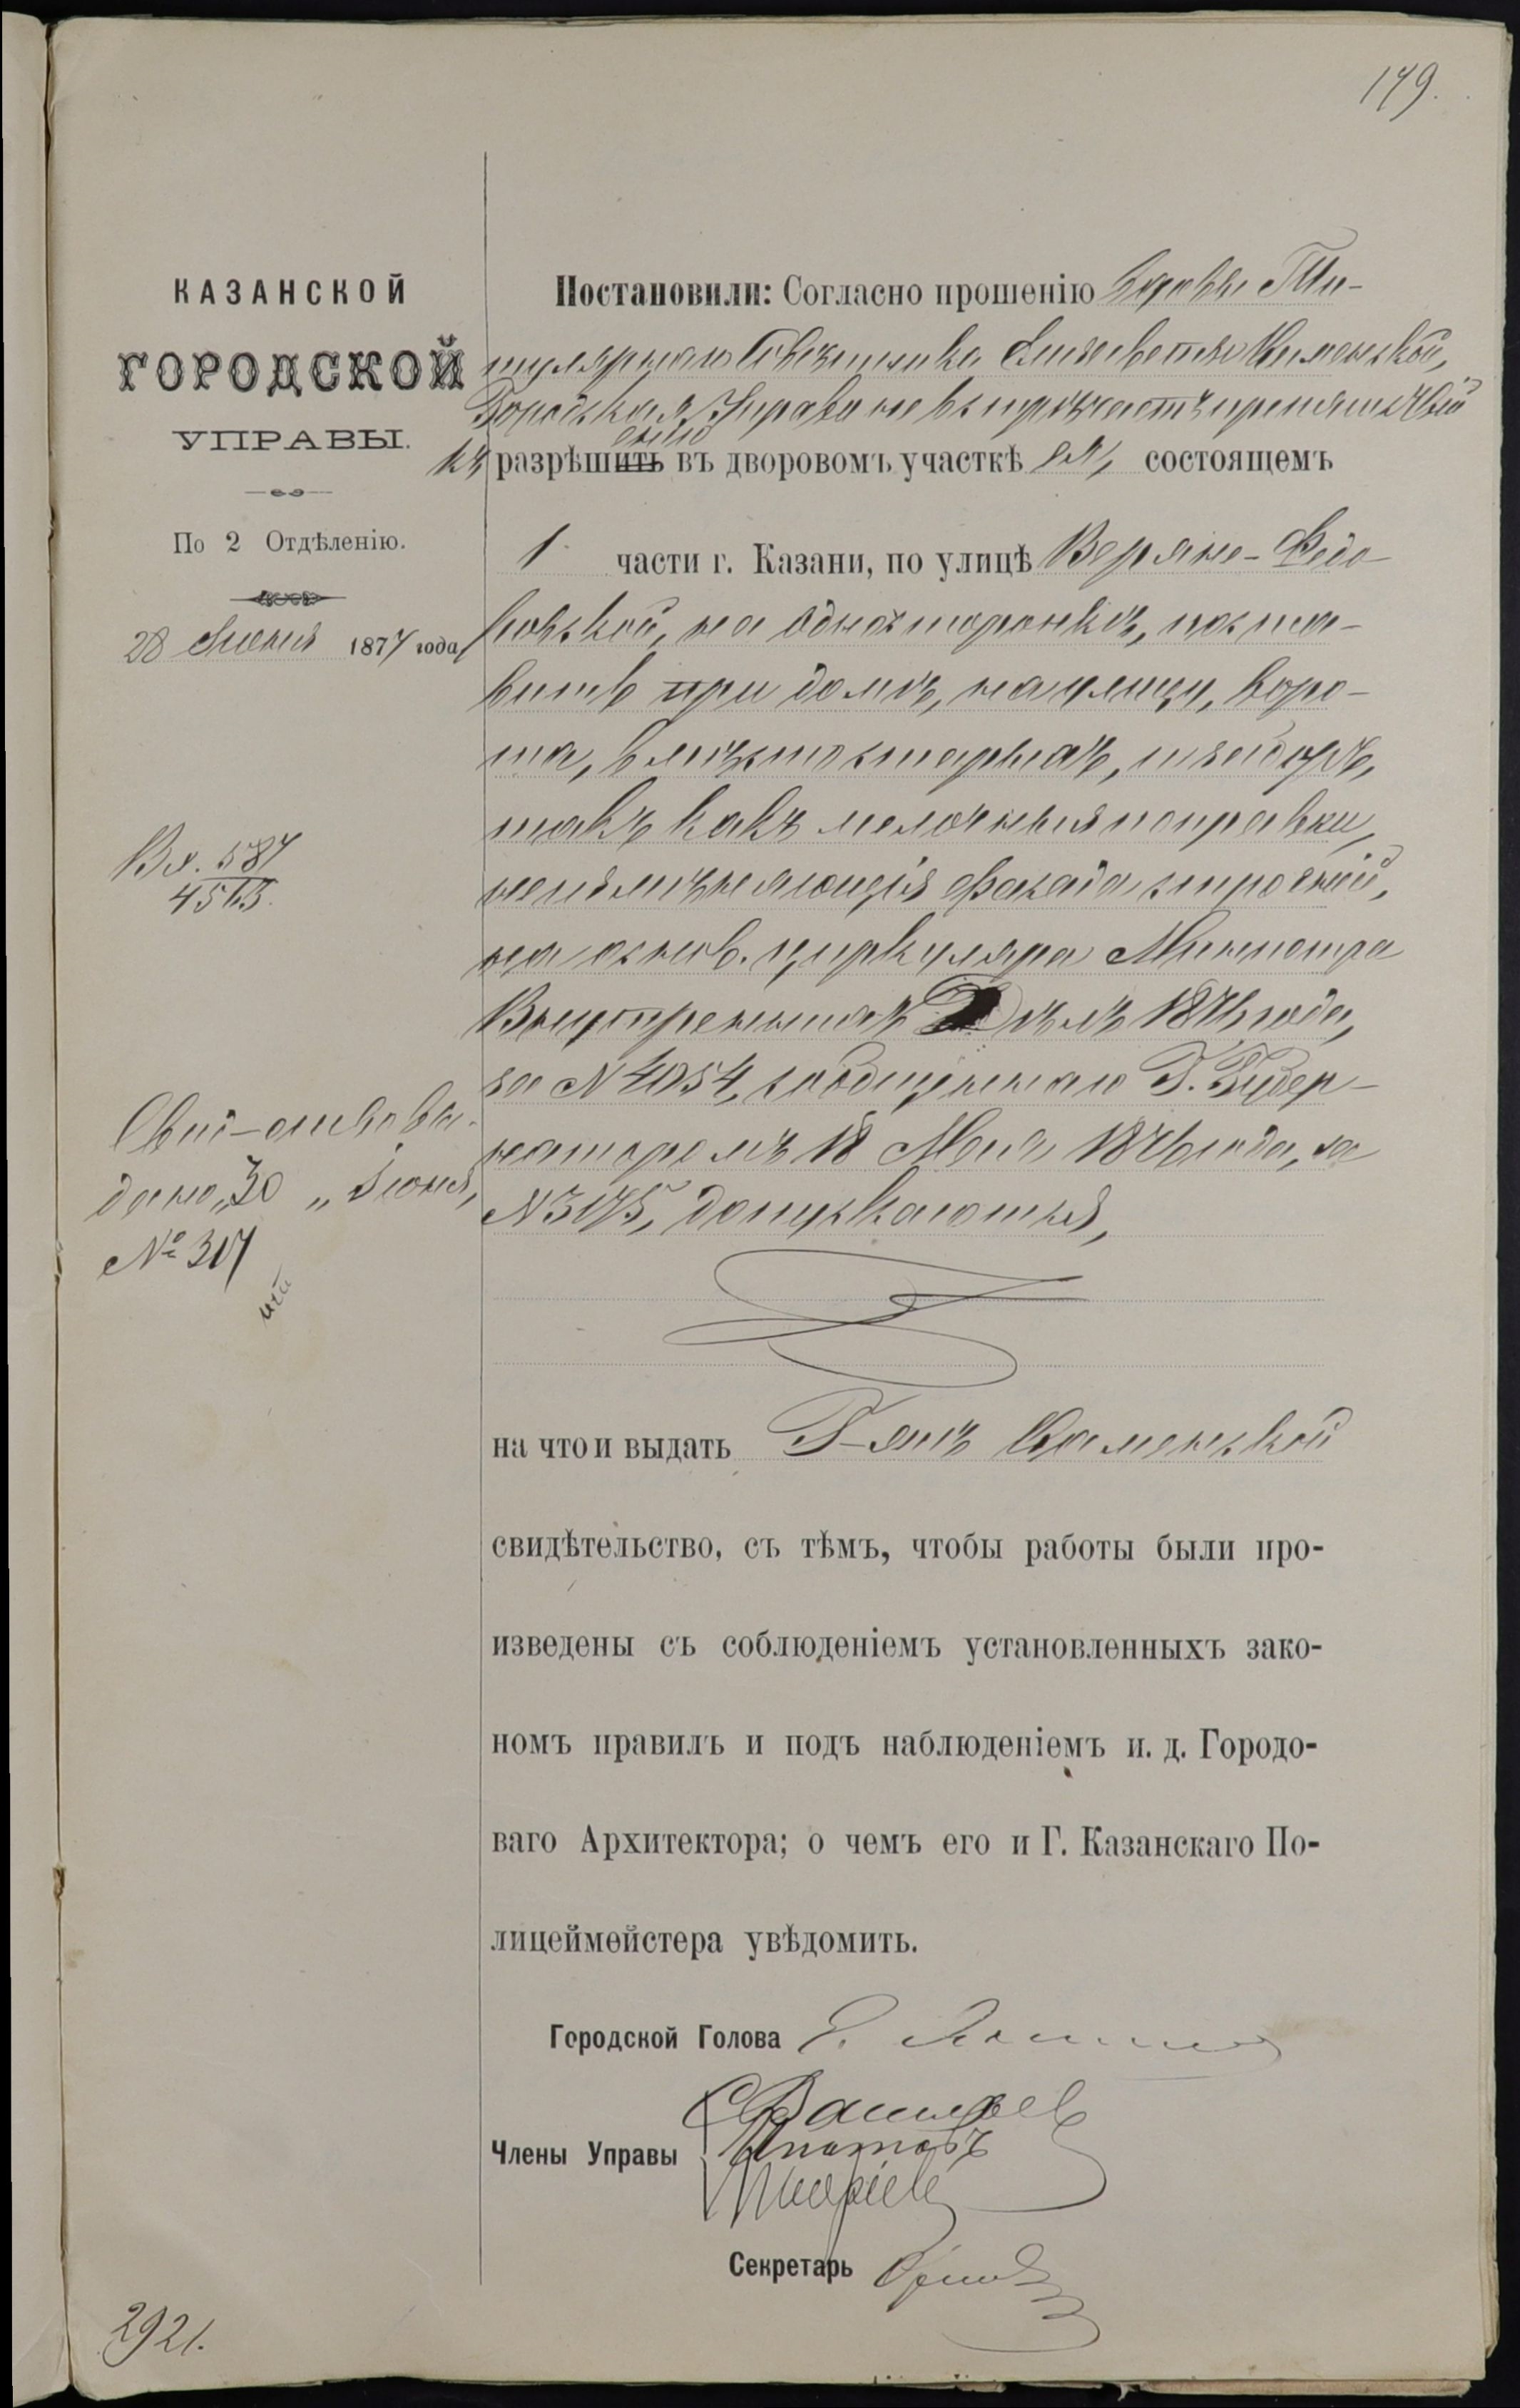 179.
КАЗАНСКОЙ
ГОРОДСКОЙ
УПРАВЫ.
По 2 Отдѣленію.
28 Іюня 1877 года
Вх. 587
4563.
Свид-ельство вы-
дано „30„ Іюня,
№ 317
Постановили: Согласно прошенію вдовы Ти-
тулярнаго Совѣтника Елизаветы Каменской,
Городская Управа не встрѣчаетъ препятствій
къ разрѣшенію въ дворовомъ участкѣ ея, состоящемъ
1 части г. Казани, по улицѣ Верхне-Ѳедо-
ровской, на односторонкѣ, поста-
вить при домѣ, на улицу, воро-
та, вмѣсто старыхъ, и заборъ,
такъ какъ мелочныя поправки,
неизмѣняющія фасада строеній,
на основ. циркуляра Министра
Внутреннихъ Дѣлъ 1876 года,
за № 4054, сообщеннаго Г. Губер-
наторомъ 18 Мая 1876 года, за
№ 3175, допускаются,
на что и выдать Г-жѣ Каменской
свидѣтельство, съ тѣмъ, чтобы работы были про-
изведены съ соблюденіемъ установленныхъ зако-
номъ правилъ и подъ наблюденіемъ и. д. Городо-
ваго Архитектора; о чемъ его и Г. Казанскаго По-
лицеймейстера увѣдомить.
Городской Голова
Члены Управы
С Васильев
Ипатовъ
Секретарь
2921.